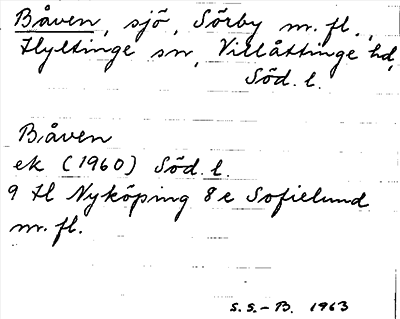 Båven, sjö, Sörby m. fl.,
Hyltinge sn, Villåttinge hd,
Söd. l.
Båven
ek (1960) Söd. l.
9 H Nyköping 8 e Sofielund
m. fl.
S.S.-B. 1963